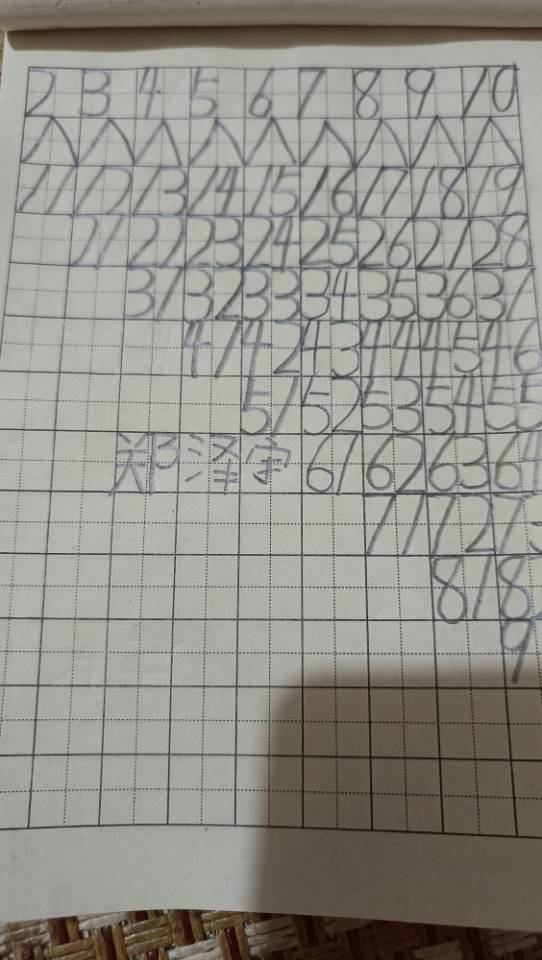 2 3 4 5 6 7 8 9 10
11 12 13 14 15 16 17 18 19
21 22 23 24 25 26 27 28
31 32 33 34 35 36 37
41 42 43 44 45 46
51 52 53 54 55
郑泽宇 61 62 63 64
71 72 73
81 82
9